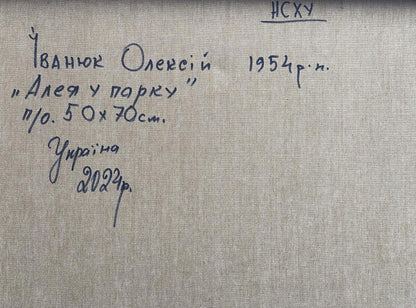 НСХУ
Іванюк Олексій 1954 р.н.
„Алея у парку”
п/о. 50х70см.
Україна
2024р.